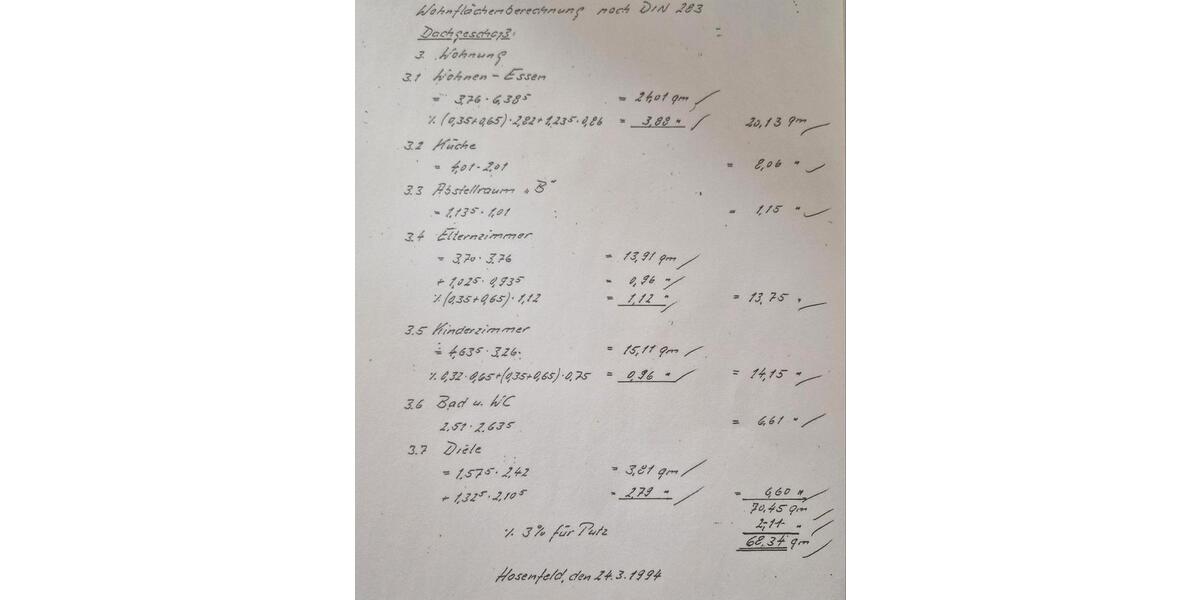 Wohnflächenberechnung nach DIN 283
Dachgeschoß:
3. Wohnung
3.1 Wohnen - Essen
= 3,76 · 6,38⁵ = 24,01 qm
⁒ (0,35+0,65) · 2,82 + 1,23⁵ · 0,86 = 3,88 " 20,13 qm
3.2 Küche
= 4,01 · 2,01 = 8,06 "
3.3 Abstellraum „B"
= 1,13⁵ · 1,01 = 1,15 "
3.4 Elternzimmer
= 3,70 · 3,76 = 13,91 qm
+ 1,02⁵ · 0,93⁵ = 0,96 "
⁒ (0,35+0,65) · 1,12 = 1,12 " = 13,75 "
3.5 Kinderzimmer
= 4,63⁵ · 3,26 = 15,11 qm
⁒ 0,32 · 0,65 + (0,35+0,65) · 0,75 = 0,96 " = 14,15 "
3.6 Bad u. WC
2,51 · 2,63⁵ = 6,61 "
3.7 Diele
= 1,57⁵ · 2,42 = 3,81 qm
+ 1,32⁵ · 2,10⁵ = 2,79 " = 6,60 "
70,45 qm
⁒ 3% für Putz 2,11 "
68,34 qm
Hosenfeld, den 24.3.1994